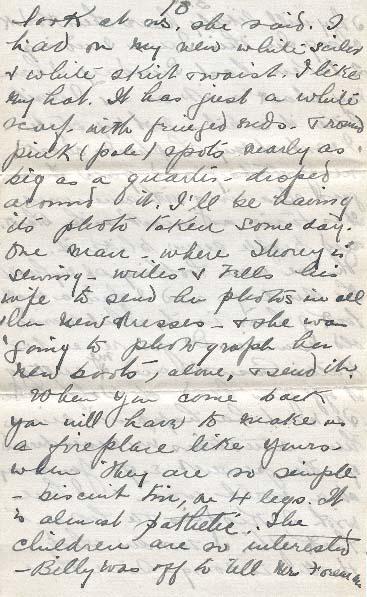 10
look at us, she said. I
had on my new white sailor
& white skirt & waist. I like
my hat. It has just a white
scarf with fringed ends. & round
pink (pale) spots nearly as
big as a quarter - draped
around it. I'll be having
its photo taken some day.
One man - where Thorey is
sewing - writes & tells his
wife to send her photos in all
her new dresses - & she was
going to photograph her
new boots, alone, & send it.
When you come back
you will have to make us
a fireplace like yours
when they are so simple
- biscuit tin, on 4 legs. It
is almost pathetic. The
children are so interested
- Billy was off to tell Mr.